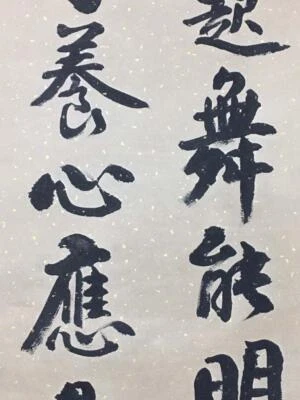 起舞能明
養心應